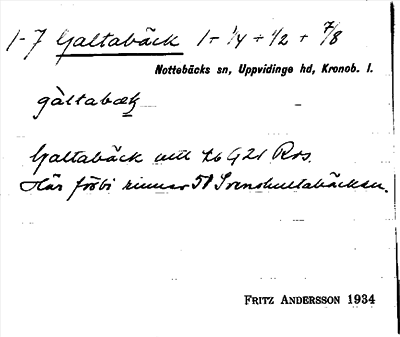 1-7 Galtabäck 1 + 1/4 + 1/2 + 7/8
Nottebäcks sn, Uppvidinge hd, Kronob. l.
gàltabæk
Galtabäck utt G 21 Ros.
Här förbi rinner 51 Svenshultabäcken.
FRITZ ANDERSSON 1934